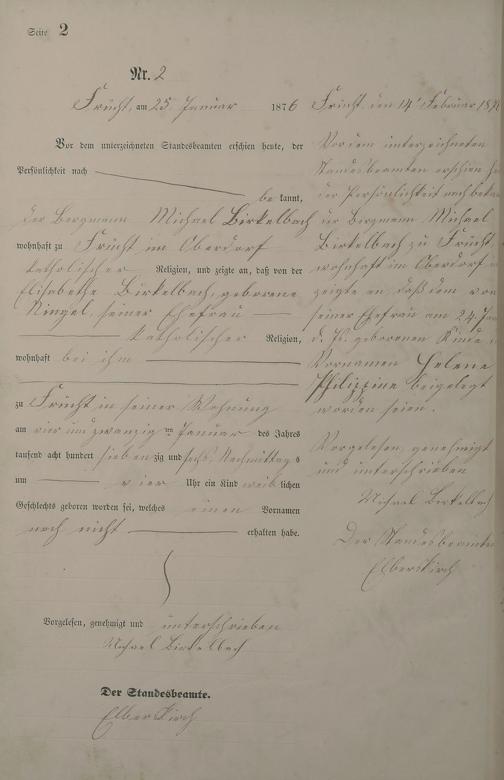 Seite 2
Nr. 2
Frücht, am 25 Januar 1876
Vor dem unterzeichneten Standesbeamten erschien heute, der
Persönlichkeit nach
bekannt,
der Bergmann Michael Birkelbach
wohnhaft zu Frücht im Oberdorf
katholischer Religion, und zeigte an, daß von der
Elisabethe Birkelbach, geborene
Ringel, seiner Ehefrau
katholischer Religion,
wohnhaft bei ihm
zu Frücht in seiner Wohnung
am vier und zwanzig ten Januar des Jahres
tausend acht hundert siebenzig und sechs, Nachmittags
um vier Uhr ein Kind weiblichen
Geschlechts geboren worden sei, welches einen Vornamen
noch nicht erhalten habe.
Vorgelesen, genehmigt und unterschrieben
Michael Birkelbach
Der Standesbeamte.
Elberskirch
Frücht, den 14 Februar 18
Vor dem unterzeichneten
Standesbeamten erschien
der Persönlichkeit nach
der Bergmann Michael
Birkelbach zu Frücht,
wohnhaft im Oberdorf
zeigte an, daß dem von
seiner Ehefrau am 24. Jan
d. Js. geborenen Kinde
Vornamen Helene
Philippine beigelegt
worden seien.
Vorgelesen, genehmigt
und unterschrieben
Michael Birkelbach
Der Standesbeamte
Elberskirch